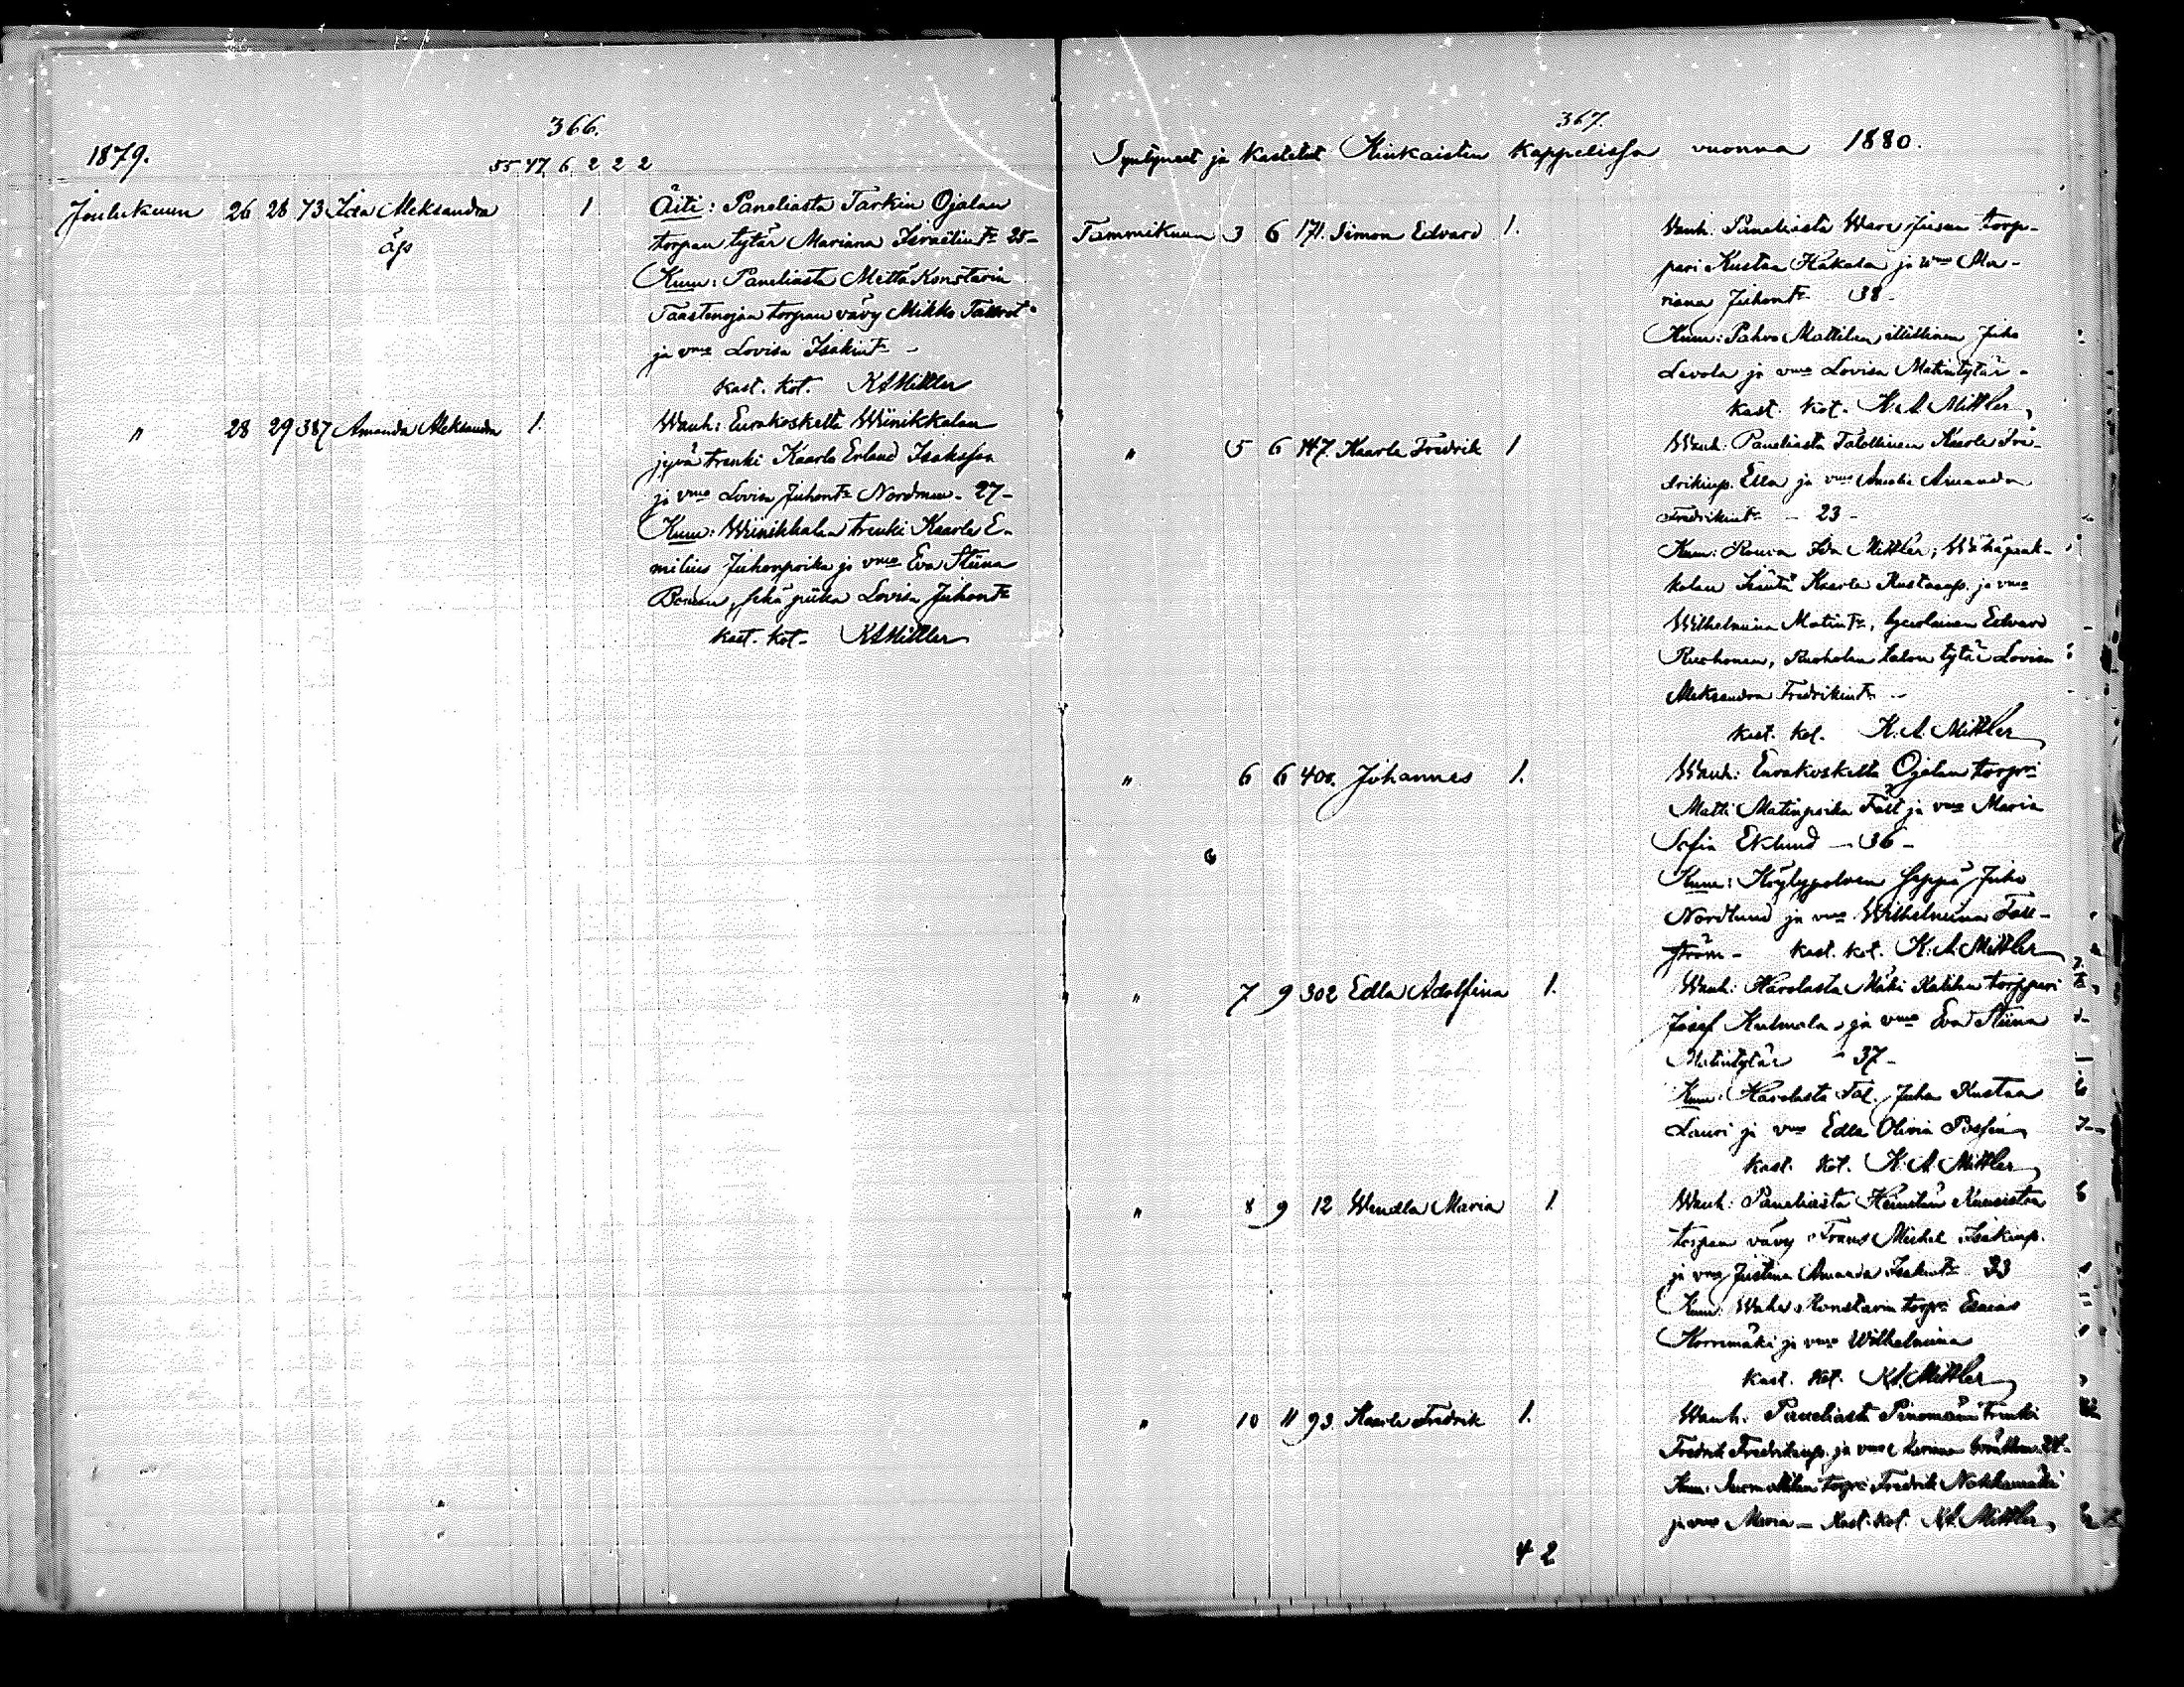 366.
1879.
55 47 6 2 2 2
Joulukuun 26 28 73 Ida Aleksandra 1 Äiti: Paneliasta Tarkin Ojalan
äp torpan tytär Mariana Israelint:r 25-
Kum: Paneliasta Mettä Konstarin
torpan vävy Mikko
ja vmo Lovisa Isakint:r -
kast. kot. KAMittler
" 28 29 387 Amanda Aleksandra 1. Wanh: Eurakoskelta Wiinikkalan
jyvä trenki Kaarlo Erland Isaksson
ja vmo Lovisa Juhont:r Nordman - 27 -
Kum: Wiinikkalan trenki Kaarle E-
milius Juhonpoika ja vmo Eva Stiina
Boman, sekä piika Lovisa Juhont:r
kast. kot. KAMittler
367.
Syntyneet ja Kastetut Kiukaisten Kappelissa vuonna 1880.
Tammikuun 3 6 171. Simon Edvard 1. Wanh: Paneliasta torp-
pari Kustaa Hakala ja wmo Ma-
riana Juhont:r 38 -
Kum: Pahvo Mattilan itsellinen Juho
Levola ja vmo Lovisa Matintytär -
kast. kot. K. A. Mittler
" 5 6 147. Kaarle Fredrik 1 Wanh: Paneliasta Talollinen Kaarle Fre-
drikinp. Ella ja vmo Amalia Amanda
Fredrikint:r - 23 -
Kum: Rouva Ida Mittler;
Kaarle Kustaanp. ja vmo
Wilhelmina Matint:r, Edvard
talon tytär Lovisa
Aleksandra Fredrikint:r -
kast. kot. K. A. Mittler
" 6 6 400. Johannes 1. Wanh: Eurakoskelta Ojalan torpri
Matti Matinpoika Fält ja vmo Maria
Sofia Eklund - 36 -
Kum: Köylypolven seppä Juho
Nordlund ja vmo Wilhelmiina Fall-
ström - kast. kot. K. A. Mittler
" 7 9 302 Edla Adolfina 1. Wanh: Harolasta Mäki torppari
Josef Kulmala, ja vmo Eva Stiina
Matintytär - 37 -
Kum: Harolasta Tal. Juha Kustaa
Lauri ja vmo Edla Olivia
kast. kot. K. A. Mittler
" 8 9 12 Wendla Maria 1. Wanh: Paneliasta
torpan vävy Frans Mikkel Isakinp.
ja vmo Justina Amanda Isakint:r 33
Kum: Konstarin torpri Esaias
Korvenmäki ja vmo Wilhelmiina
kast. kot. KA. Mittler
" 10 11 93. Kaarle Fredrik 1. Wanh: Paneliasta trenki
Fredrik Fredrikinp. ja vmo
Kum: torpri Fredrik
ja vmo Maria - Kast. kot. KA. Mittler
4 2